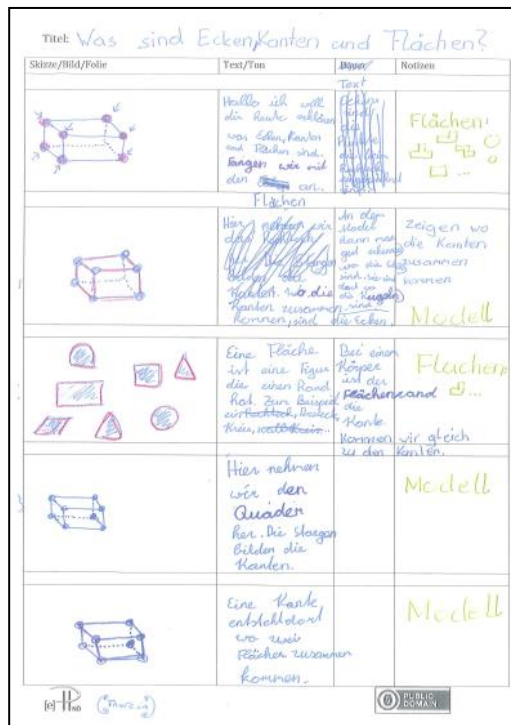 Titel: Was sind Ecken, Kanten und Flächen?
Skizze/Bild/Folie Text/Ton Notizen
Text
Hallo ich will
dir heute erklären
was Ecken, Kanten
und Flächen sind.
Fangen wir mit
den an.
Flächen
Flächen
Hier nehmen wir
Kanten. wo die
Kanten zusammen
kommen, sind die Ecken.
An dem
Model
kann man
gut
wo die
sind. Sie sind
dort wo
die Kugeln
sind.
Zeigen wo
die Kanten
zusammen
kommen
Modell
Eine Fläche
ist eine Figur
die einen Rand
hat. Zum Beispiel
ein Rechteck, Dreieck
Kreis, ...
Bei einem
Körper
ist der
Flächenrand
die
Kante.
kommen wir gleich
zu den Kanten.
Flächen
...
Hier nehmen
wir den
Quader
her. Die Stangen
bilden die
Kanten.
Modell
Eine Kante
entsteht dort
wo zwei
Flächen zusammen
kommen.
Modell
PUBLIC
DOMAIN